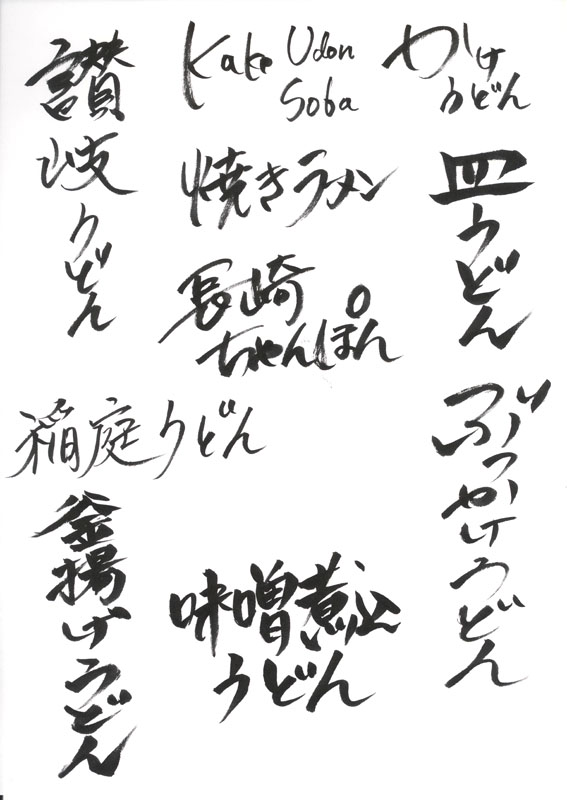 讃岐うどん
Kake Udon
Soba
かけ
うどん
焼きラーメン
皿うどん
長崎
ちゃんぽん
稲庭うどん
ぶっかけうどん
釜揚げうどん
味噌煮込
うどん